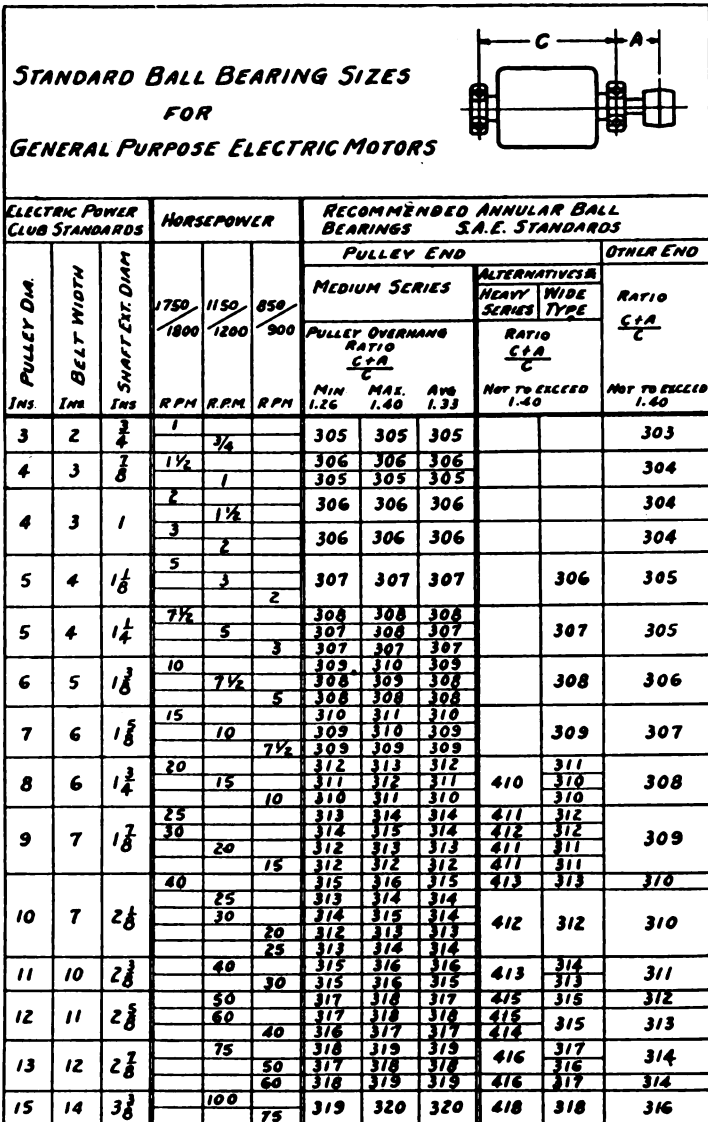 C A
STANDARD BALL BEARING SIZES
FOR
GENERAL PURPOSE ELECTRIC MOTORS
ELECTRIC POWER CLUB STANDARDS HORSEPOWER RECOMMENDED ANNULAR BALL BEARINGS S.A.E. STANDARDS
PULLEY END OTHER END
PULLEY DIA. INS. BELT WIDTH INS SHAFT EXT. DIAM INS
1750/1800 RPM 1150/1200 R.P.M. 850/900 RPM
MEDIUM SERIES
PULLEY OVERHANG
RATIO
C+A
C
MIN 1.26 MAX. 1.40 AVG 1.33
ALTERNATIVES
HEAVY SERIES WIDE TYPE
RATIO
C+A
C
NOT TO EXCEED
1.40
RATIO
C+A
C
NOT TO EXCEED
1.40
3 2 3/4 1 305 305 305 303
3/4
4 3 7/8 1 1/2 306 306 306 304
1 305 305 305
4 3 1 2 306 306 306 304
1 1/2
3 306 306 306 304
2
5 4 1 1/8 5 307 307 307 306 305
3
2
5 4 1 1/4 7 1/2 308 308 308 307 305
5 307 308 307
3 307 307 307
6 5 1 3/8 10 309 310 309 308 306
7 1/2 308 309 308
5 308 308 308
7 6 1 5/8 15 310 311 310 309 307
10 309 310 309
7 1/2 309 309 309
8 6 1 3/4 20 312 313 312 410 311 308
15 311 312 311 310
10 310 311 310 310
9 7 1 7/8 25 313 314 314 411 312 309
30 314 315 314 412 312
20 312 313 313 411 311
15 312 312 312 411 311
10 7 2 1/8 40 315 316 315 413 313 310
25 313 314 314 412 312 310
30 314 315 314
20 312 313 313
25 313 314 314
11 10 2 3/8 40 315 316 316 413 314 311
30 315 316 315 313
12 11 2 5/8 50 317 318 317 415 315 312
60 317 318 318 415 315 313
40 316 317 317 414
13 12 2 7/8 75 318 319 319 416 317 314
50 317 318 318 316
60 318 319 319 416 317 314
15 14 3 3/8 100 319 320 320 418 318 316
75